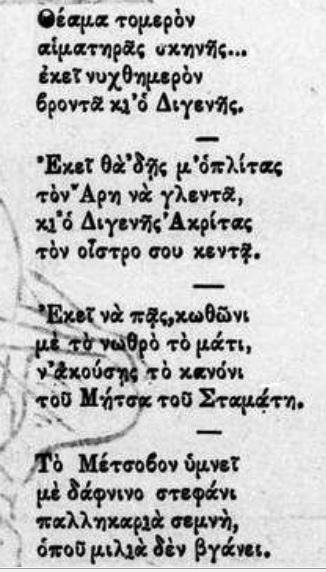 Θέαμα τομερὸν
αἱματηρᾶς σκηνῆς...
ἐκεῖ νυχθημερὸν
βροντᾷ κι' ὁ Διγενής.
—
Ἐκεῖ θὰ 'δῇς μ' ὁπλίτας
τὸν Ἄρη νὰ γλεντᾷ,
κι' ὁ Διγενῆς Ἀκρίτας
τὸν οἶστρο σου κεντᾷ.
—
Ἐκεῖ νὰ πᾷς, κωθῶνι
μὲ τὸ νωθρὸ τὸ μάτι,
ν' ἀκούσῃς τὸ κανόνι
τοῦ Μήτσα τοῦ Σταμάτη.
—
Τὸ Μέτσοβον ὑμνεῖ
μὲ δάφνινο στεφάνι
παλληκαριὰ σεμνὴ,
ὁποῦ μιλιὰ δὲν βγάνει.